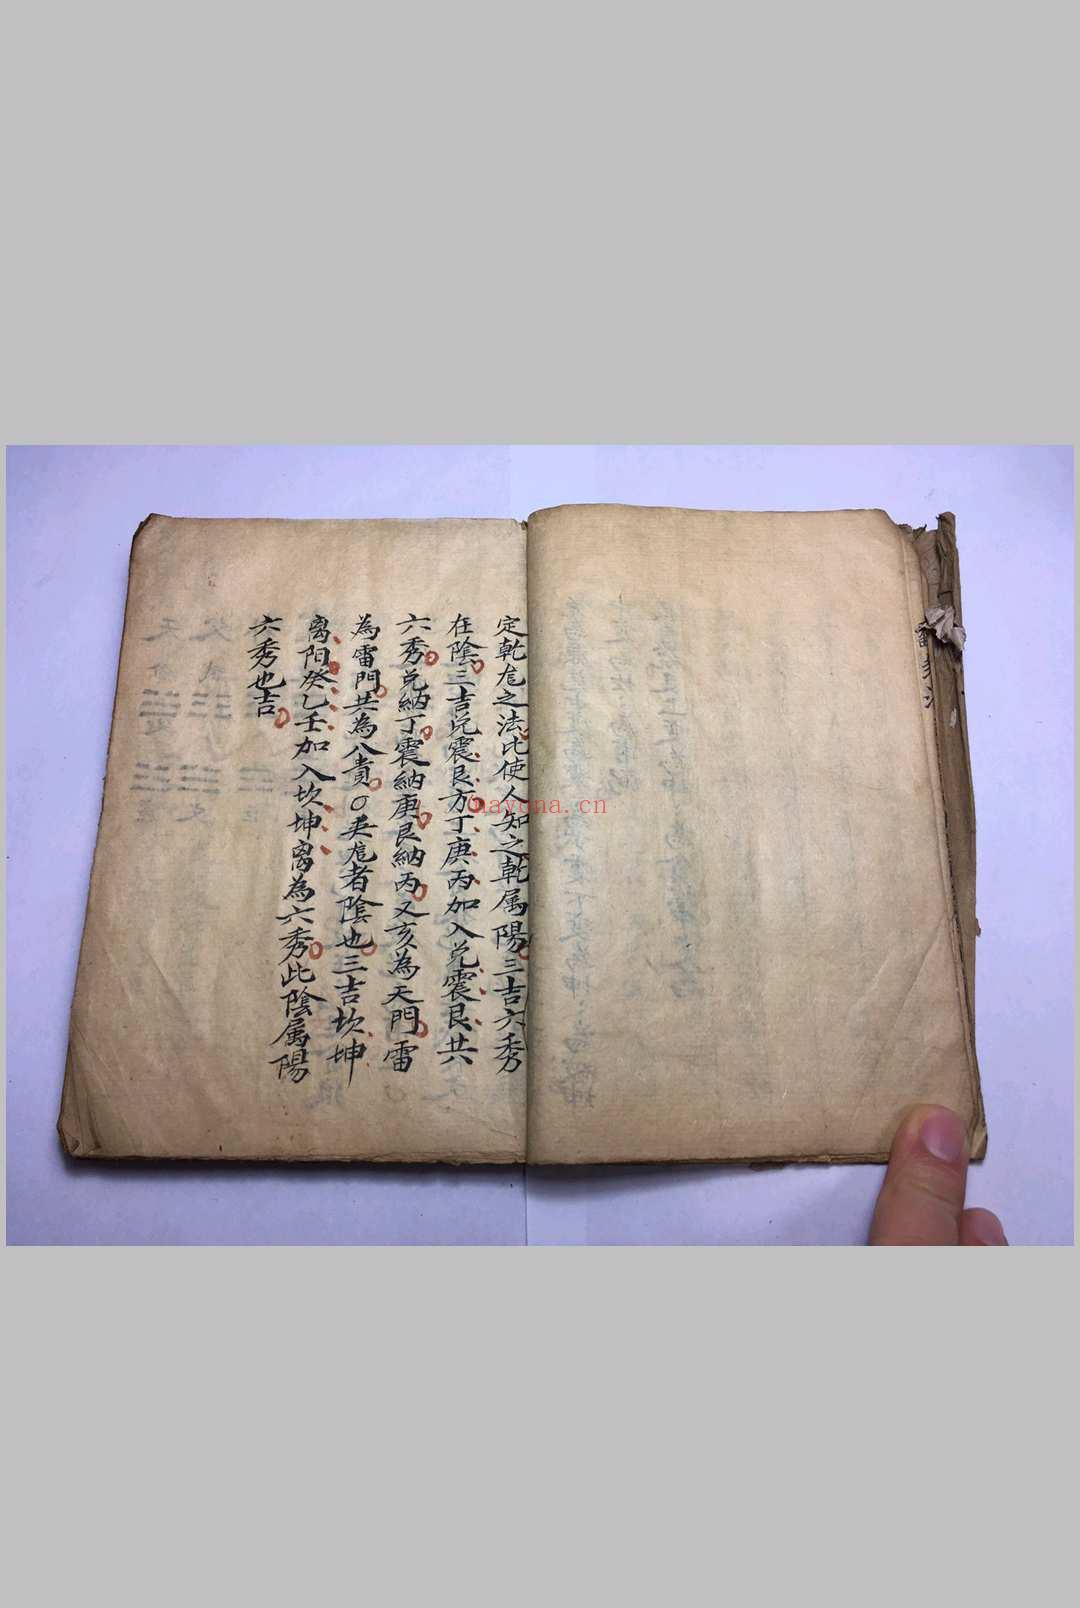 定乾尨之法比使人知之乾属陽三吉六秀
在陰三吉兑震艮方丁庚丙加入兑震艮共
六秀兑納丁震納庚艮納丙又亥為天門雷
為雷門共為八貴○尨者陰也三吉坎坤
离阳癸乙壬加入坎坤离為六秀此陰属陽
六秀也吉
nayona.cn